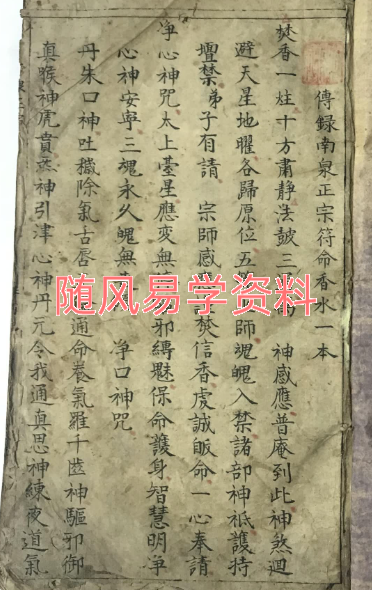 傳録南泉正宗符命香水一本
焚香一炷十方肅静法皷三 神感應普庵到此神煞迴
避天星地曜各歸原位五 師魂魄入禁諸部神祇護持
壇禁弟子有請 宗師感 焚信香虔誠皈命一心奉請
净心神咒太上臺星應変無 邪縛魅保命護身智慧明净
心神安寧三魂永久魄無 净口神咒
丹朱口神吐穢除氣舌唇 通命養氣羅千齒神驅邪御
真喉神虎賁炁神引津心神丹元令我通真思神練夜道氣
随风易学资料